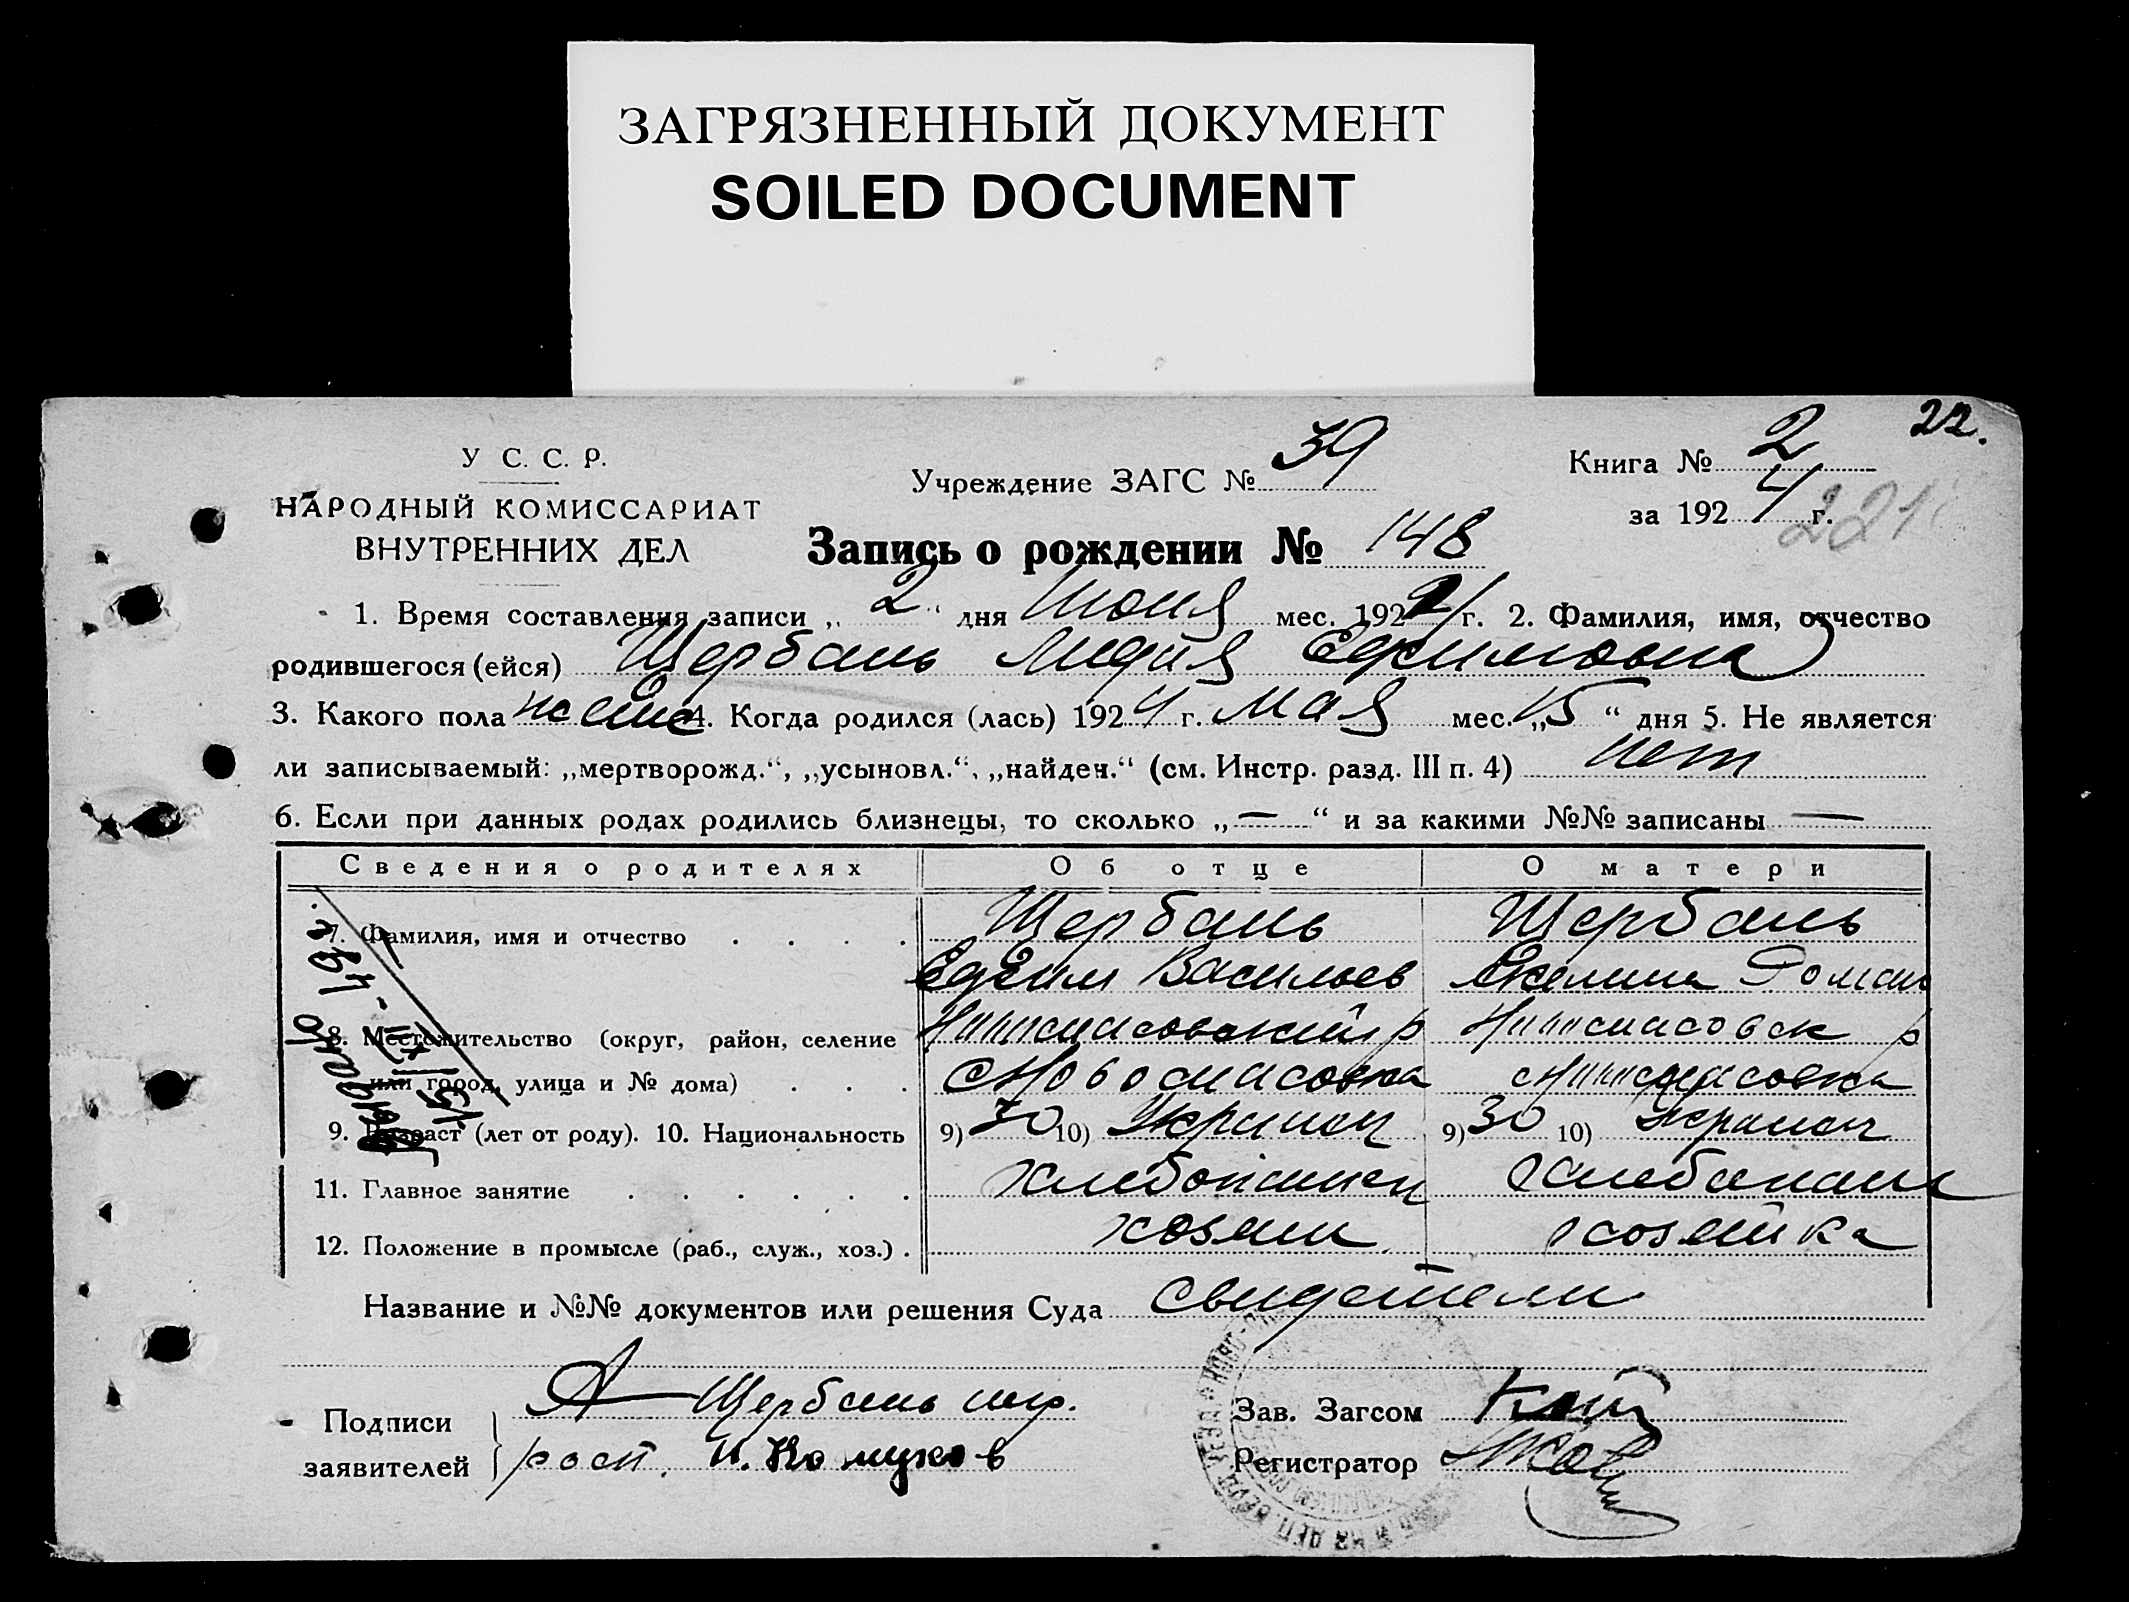 ЗАГРЯЗНЕННЫЙ ДОКУМЕНТ
SOILED DOCUMENT
22.
У С. С. Р.
НАРОДНЫЙ КОМИССАРИАТ
ВНУТРЕННИХ ДЕЛ
Учреждение ЗАГС № 39
Книга № 2
за 1924 г.
221
Запись о рождении № 148
1. Время составления записи „ 2 “ дня Июня мес. 1924 г. 2. Фамилия, имя, отчество
родившегося (ейся) Щербань Лидия Ефимовна
3. Какого пола женс 4. Когда родился (лась) 1924 г. мая мес. „15“ дня 5. Не является
ли записываемый: „мертворожд.“, „усыновл.“, „найден.“ (см. Инстр. разд. III п. 4) нет
6. Если при данных родах родились близнецы, то сколько „—“ и за какими №№ записаны —
Сведения о родителях Об отце О матери
7. Фамилия, имя и отчество . . . . Щербань Щербань
Ефим Васильев Роман
8. Местожительство (округ, район, селение
или город, улица и № дома) . . .
9. Возраст (лет от роду). 10. Национальность 9) 30 10) Украинец 9) 30 10)
11. Главное занятие . . . . . . хлебопашец
12. Положение в промысле (раб., служ., хоз.) . хозяин хозяйка
Название и №№ документов или решения Суда свидетели
Подписи
заявителей
Щербань негр.
расп.
Зав. Загсом
Регистратор